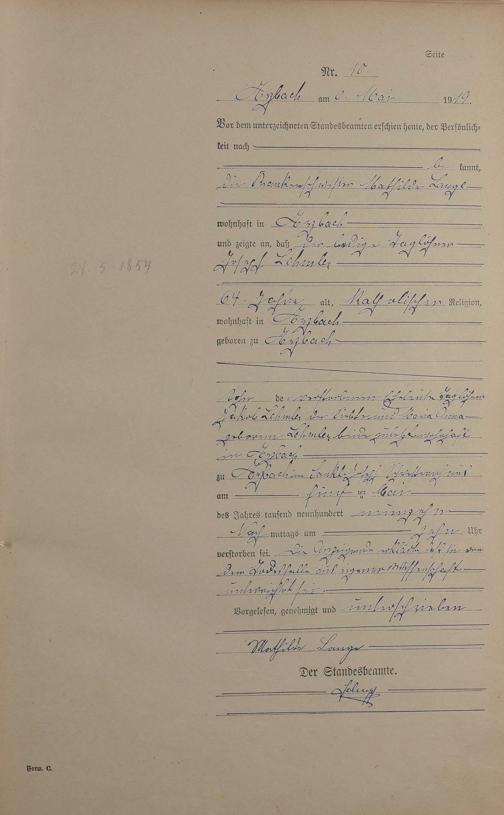 Seite
Nr. 10
Arzbach am 6. Mai 1919.
Vor dem unterzeichneten Standesbeamten erschien heute, der Persönlich-
keit nach
be kannt,
die Krankenschwester Mathilde Lange
wohnhaft in Arzbach
und zeigte an, daß der ledige Taglöhner
Josef Lehmler
64 Jahre alt, katholischer Religion,
wohnhaft in Arzbach
geboren zu Arzbach
24 5 1854
Sohn de r verstorbenen Eheleute Taglöhner
Jakob Lehmler und Maria Anna
geborene Lehmler beide zuletzt wohnhaft
in Arzbach
zu Arzbach im
am fünf ten Mai
des Jahres tausend neunhundert neunzehn
Nach mittags um zehn Uhr
verstorben sei. Die Anzeigende erklärte daß sie von
dem Todesfalle aus eigener Wissenschaft
unterrichtet sei.
Vorgelesen, genehmigt und unterschrieben
Mathilde Lange
Der Standesbeamte.
Form. C.